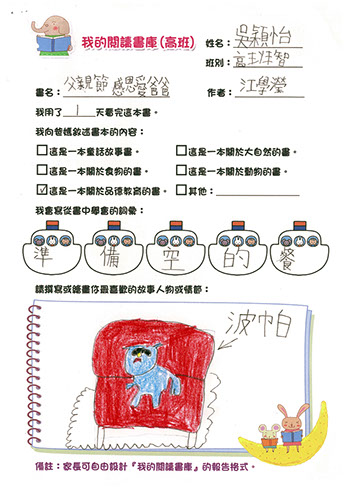 我的閱讀書庫(高班)
姓名：吳穎怡
班別：高班智
書名：父親節 感恩愛爸爸
作者：江學瀅
我用了 1 天看完這本書。
我向爸媽敘述書本的內容：
□這是一本童話故事書。 □這是一本關於大自然的書。
□這是一本關於食物的書。 □這是一本關於動物的書。
☑這是一本關於品德教育的書。 □其他：
我會寫從書中學會的詞彙：
準 備 空 的 餐
請撰寫或繪畫你最喜歡的故事人物或情節：
波帕
備註：家長可自由設計『我的閱讀書庫』的報告格式。